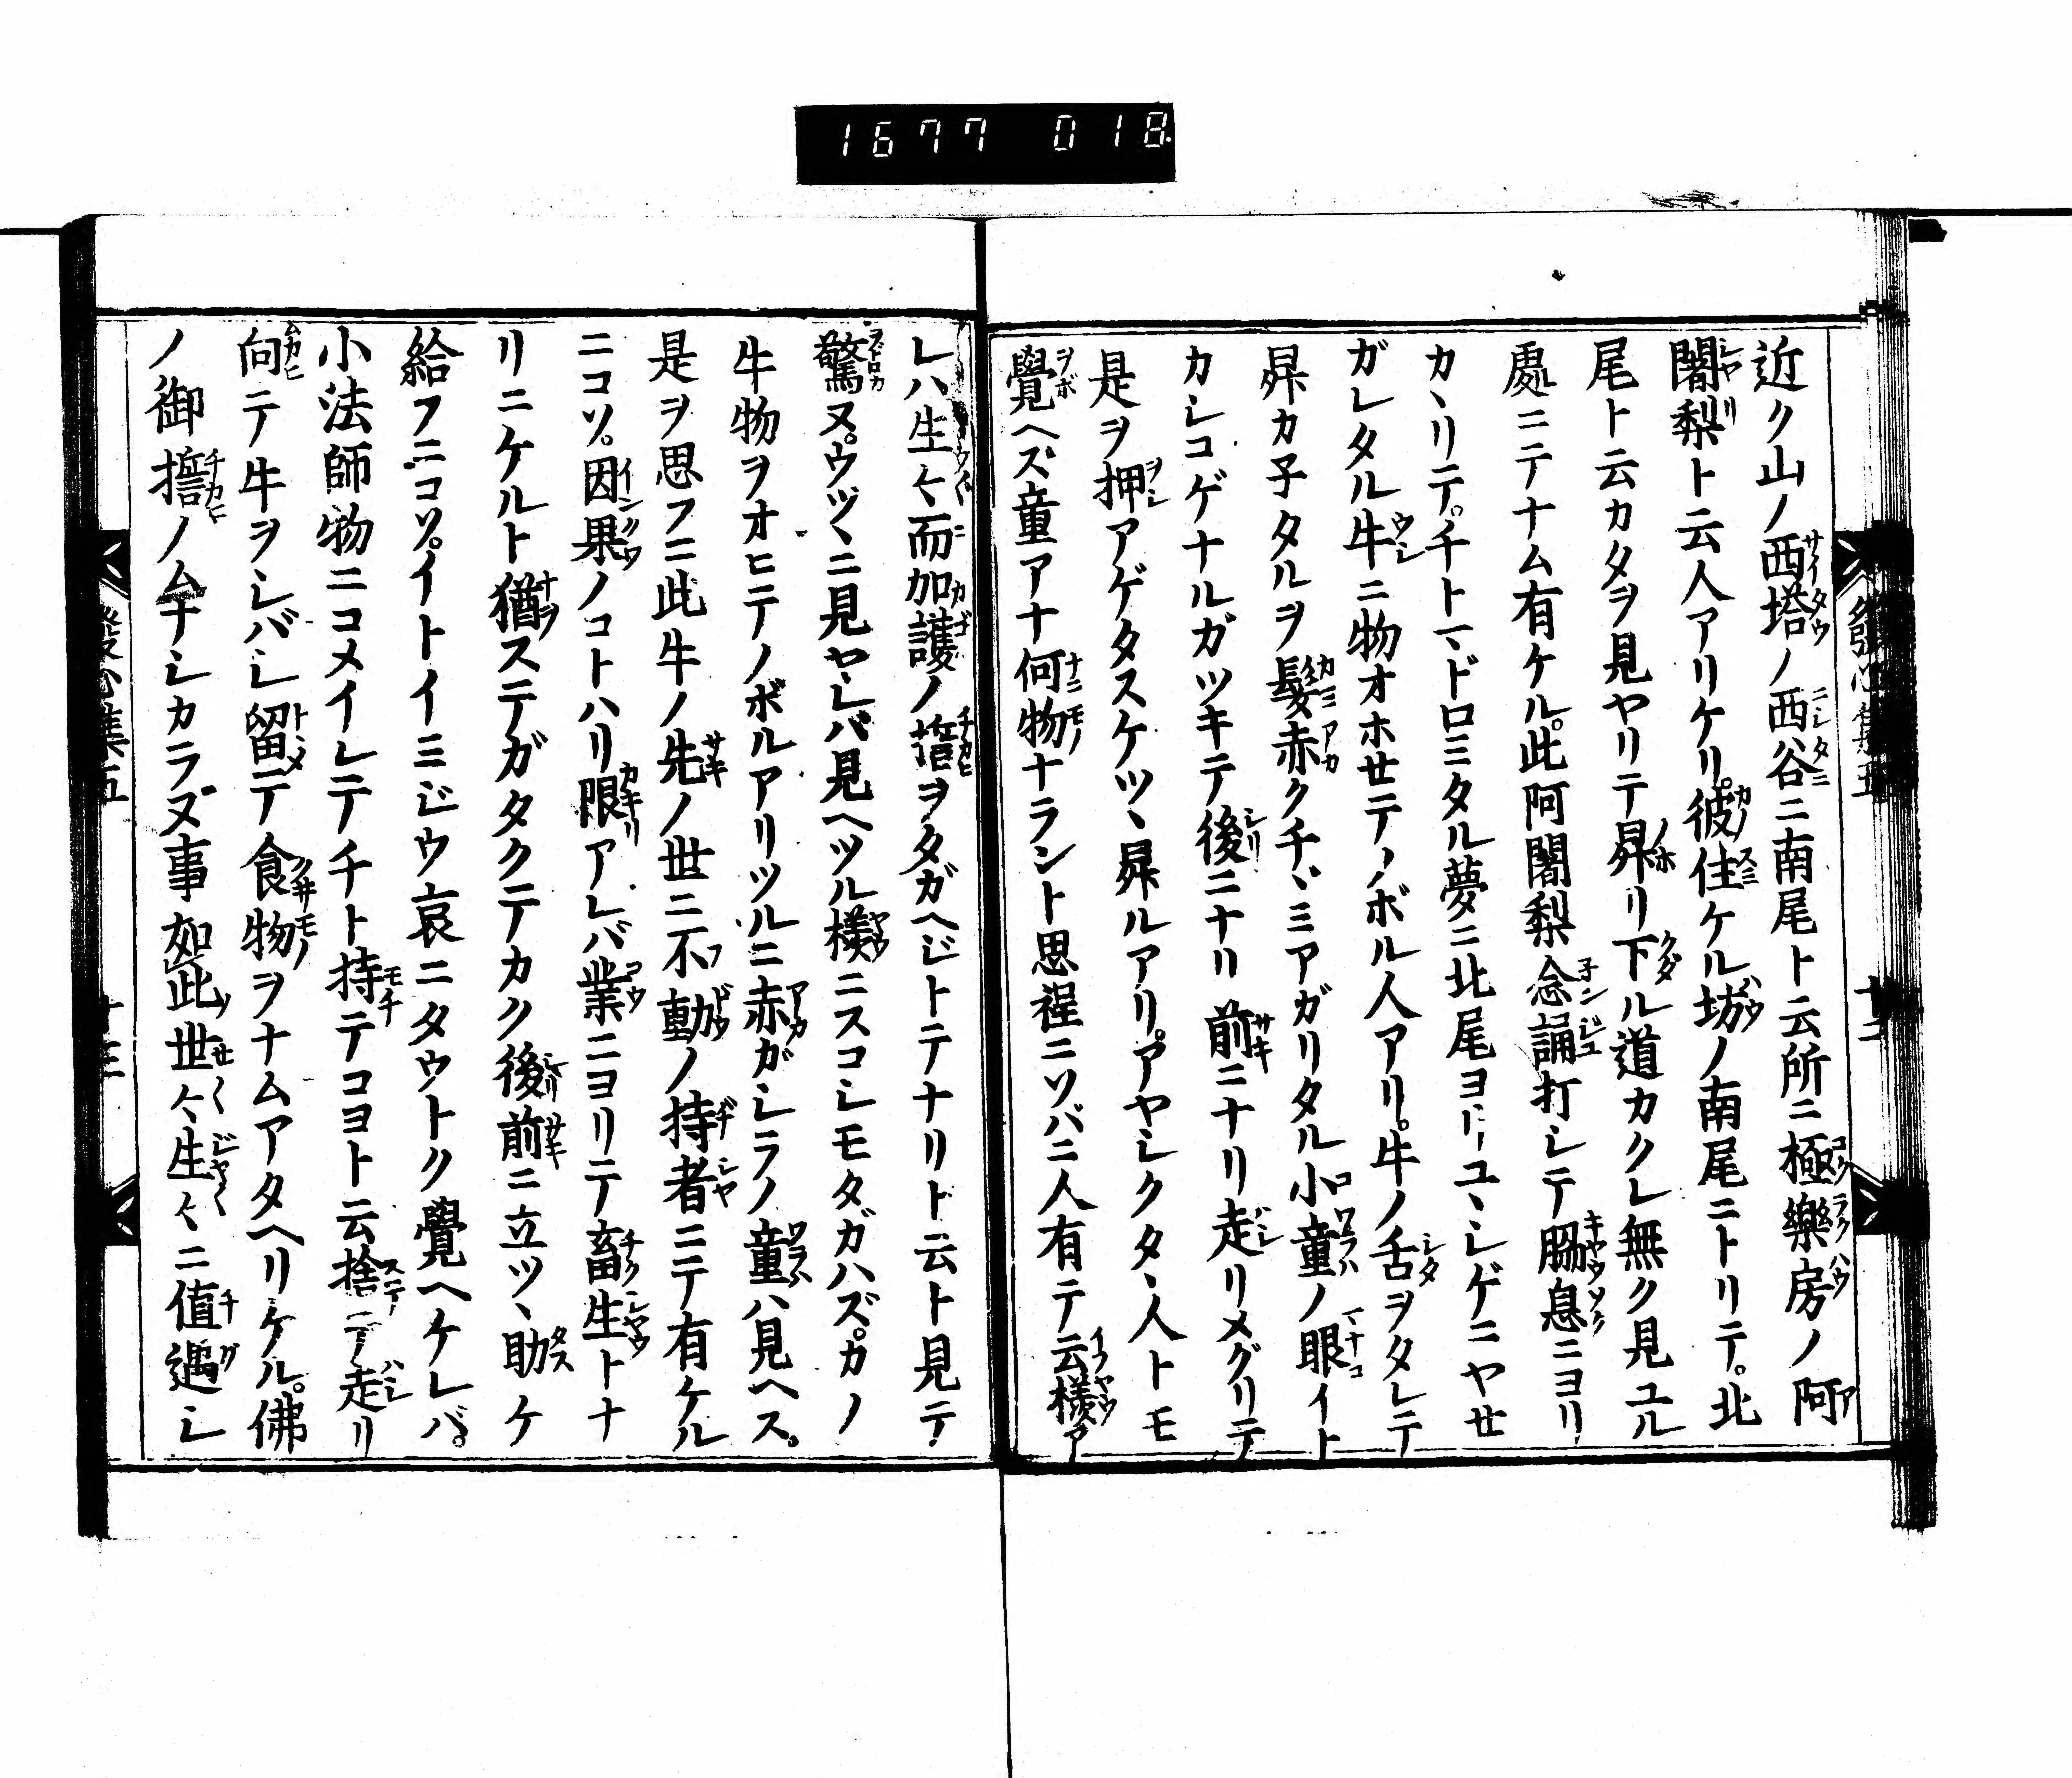 1677 018
近ク山ノ西塔ノ西谷ニ南尾ト云所ニ極樂房ノ阿
闍梨ト云人アリケリ。彼住ケル坊ノ南尾ニトリテ。北
尾ト云カタヲ見ヤリテ昇リ下ル道カクレ無ク見ユル
處ニテナム有ケル。此阿闍梨念誦打シテ脇息ニヨリ
カヽリテ。チトマドロミタル夢ニ北尾ヨリユヽシゲニヤセ
ガレタル牛ニ物オホセテノボル人アリ。牛ノ舌ヲタレテ
昇カ子タルヲ髮赤クチヾミアガリタル小童ノ眼イト
カシコゲナルガツキテ後ニナリ前ニナリ走リメグリテ
是ヲ押アゲタスケツヽ昇ルアリ。アヤシクタヽ人トモ
覺ヘズ童アナ何物ナラント思程ニソバニ人有テ云樣ア
レハ生々而加護ノ誓ヲタガヘジトテナリト云ト見テ
驚ヌ。ウツヽニ見ヤレバ見ヘツル樣ニスコシモタガハズ。カノ
牛物ヲオヒテノボルアリツルニ赤ガシラノ童ハ見ヘス。
是ヲ思フニ此牛ノ先ノ世ニ不動ノ持者ニテ有ケル
ニコソ。因果ノコトハリ限アレバ業ニヨリテ畜生トナ
リニケルト猶ステガタクテカク後前ニ立ツヽ助ケ
給フニコソ。イトイミジウ哀ニタウトク覺ヘケレバ。
小法師物ニコメイレテチト持テコヨト云捨テ走リ
向テ牛ヲシバシ留テ食物ヲナムアタヘリケル。佛
ノ御誓ノムナシカラヌ事如此世々生々ニ値遇シ
發心集五